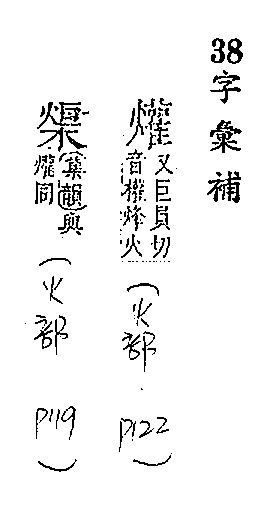 38字彙補
爟又巨員切
音權烽火
(火部 P122)
集韻與
爟同
(火部 P119)